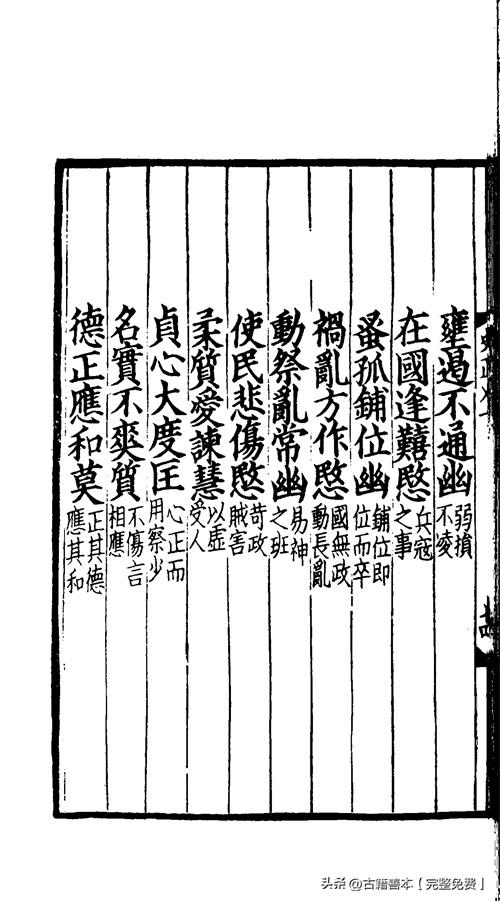 壅遏不通幽弱損不凌
在國逢囏愍兵寇之事
蚤孤鋪位幽鋪位即位而卒
禍亂方作愍國無政動長亂
動祭亂常幽易神之班
使民悲傷愍苛政賊害
柔質愛諫慧以虛受人
貞心大度匡心正而用察少
名實不爽質不傷言相應
德正應和莫正其德應其和
頭条 @古籍善本【完整免费】